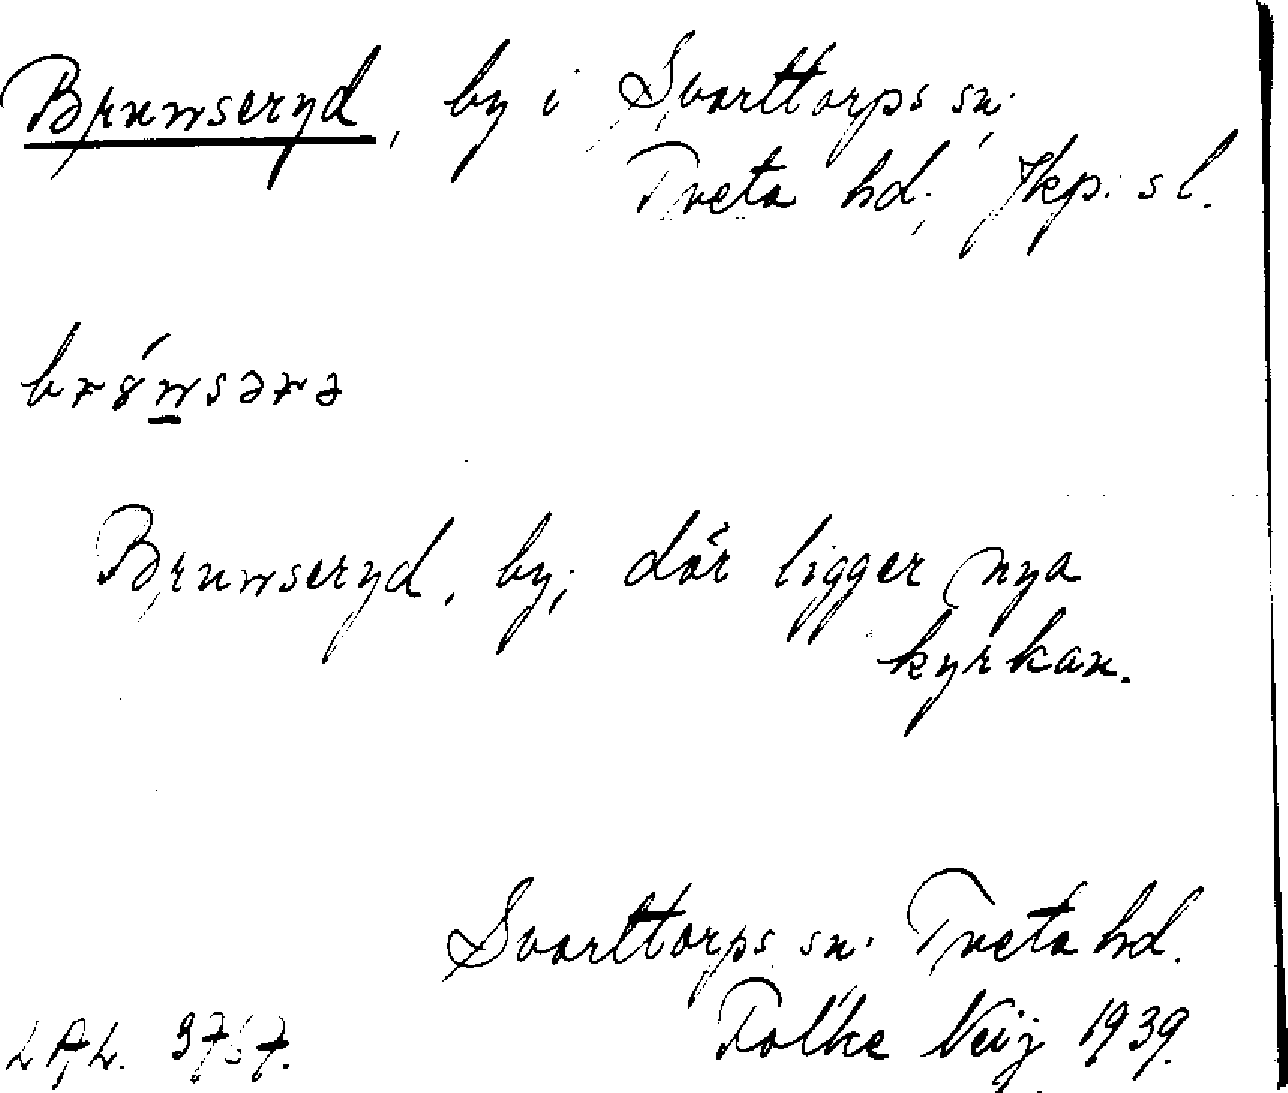 Brunnseryd, by i Svarttorps sn;
Tveta hd; Jkp:s l.
Brunnseryd, by; där ligger nya
kyrkan.
Svarttorps sn. Tveta hd.
Folke Neij 1939.